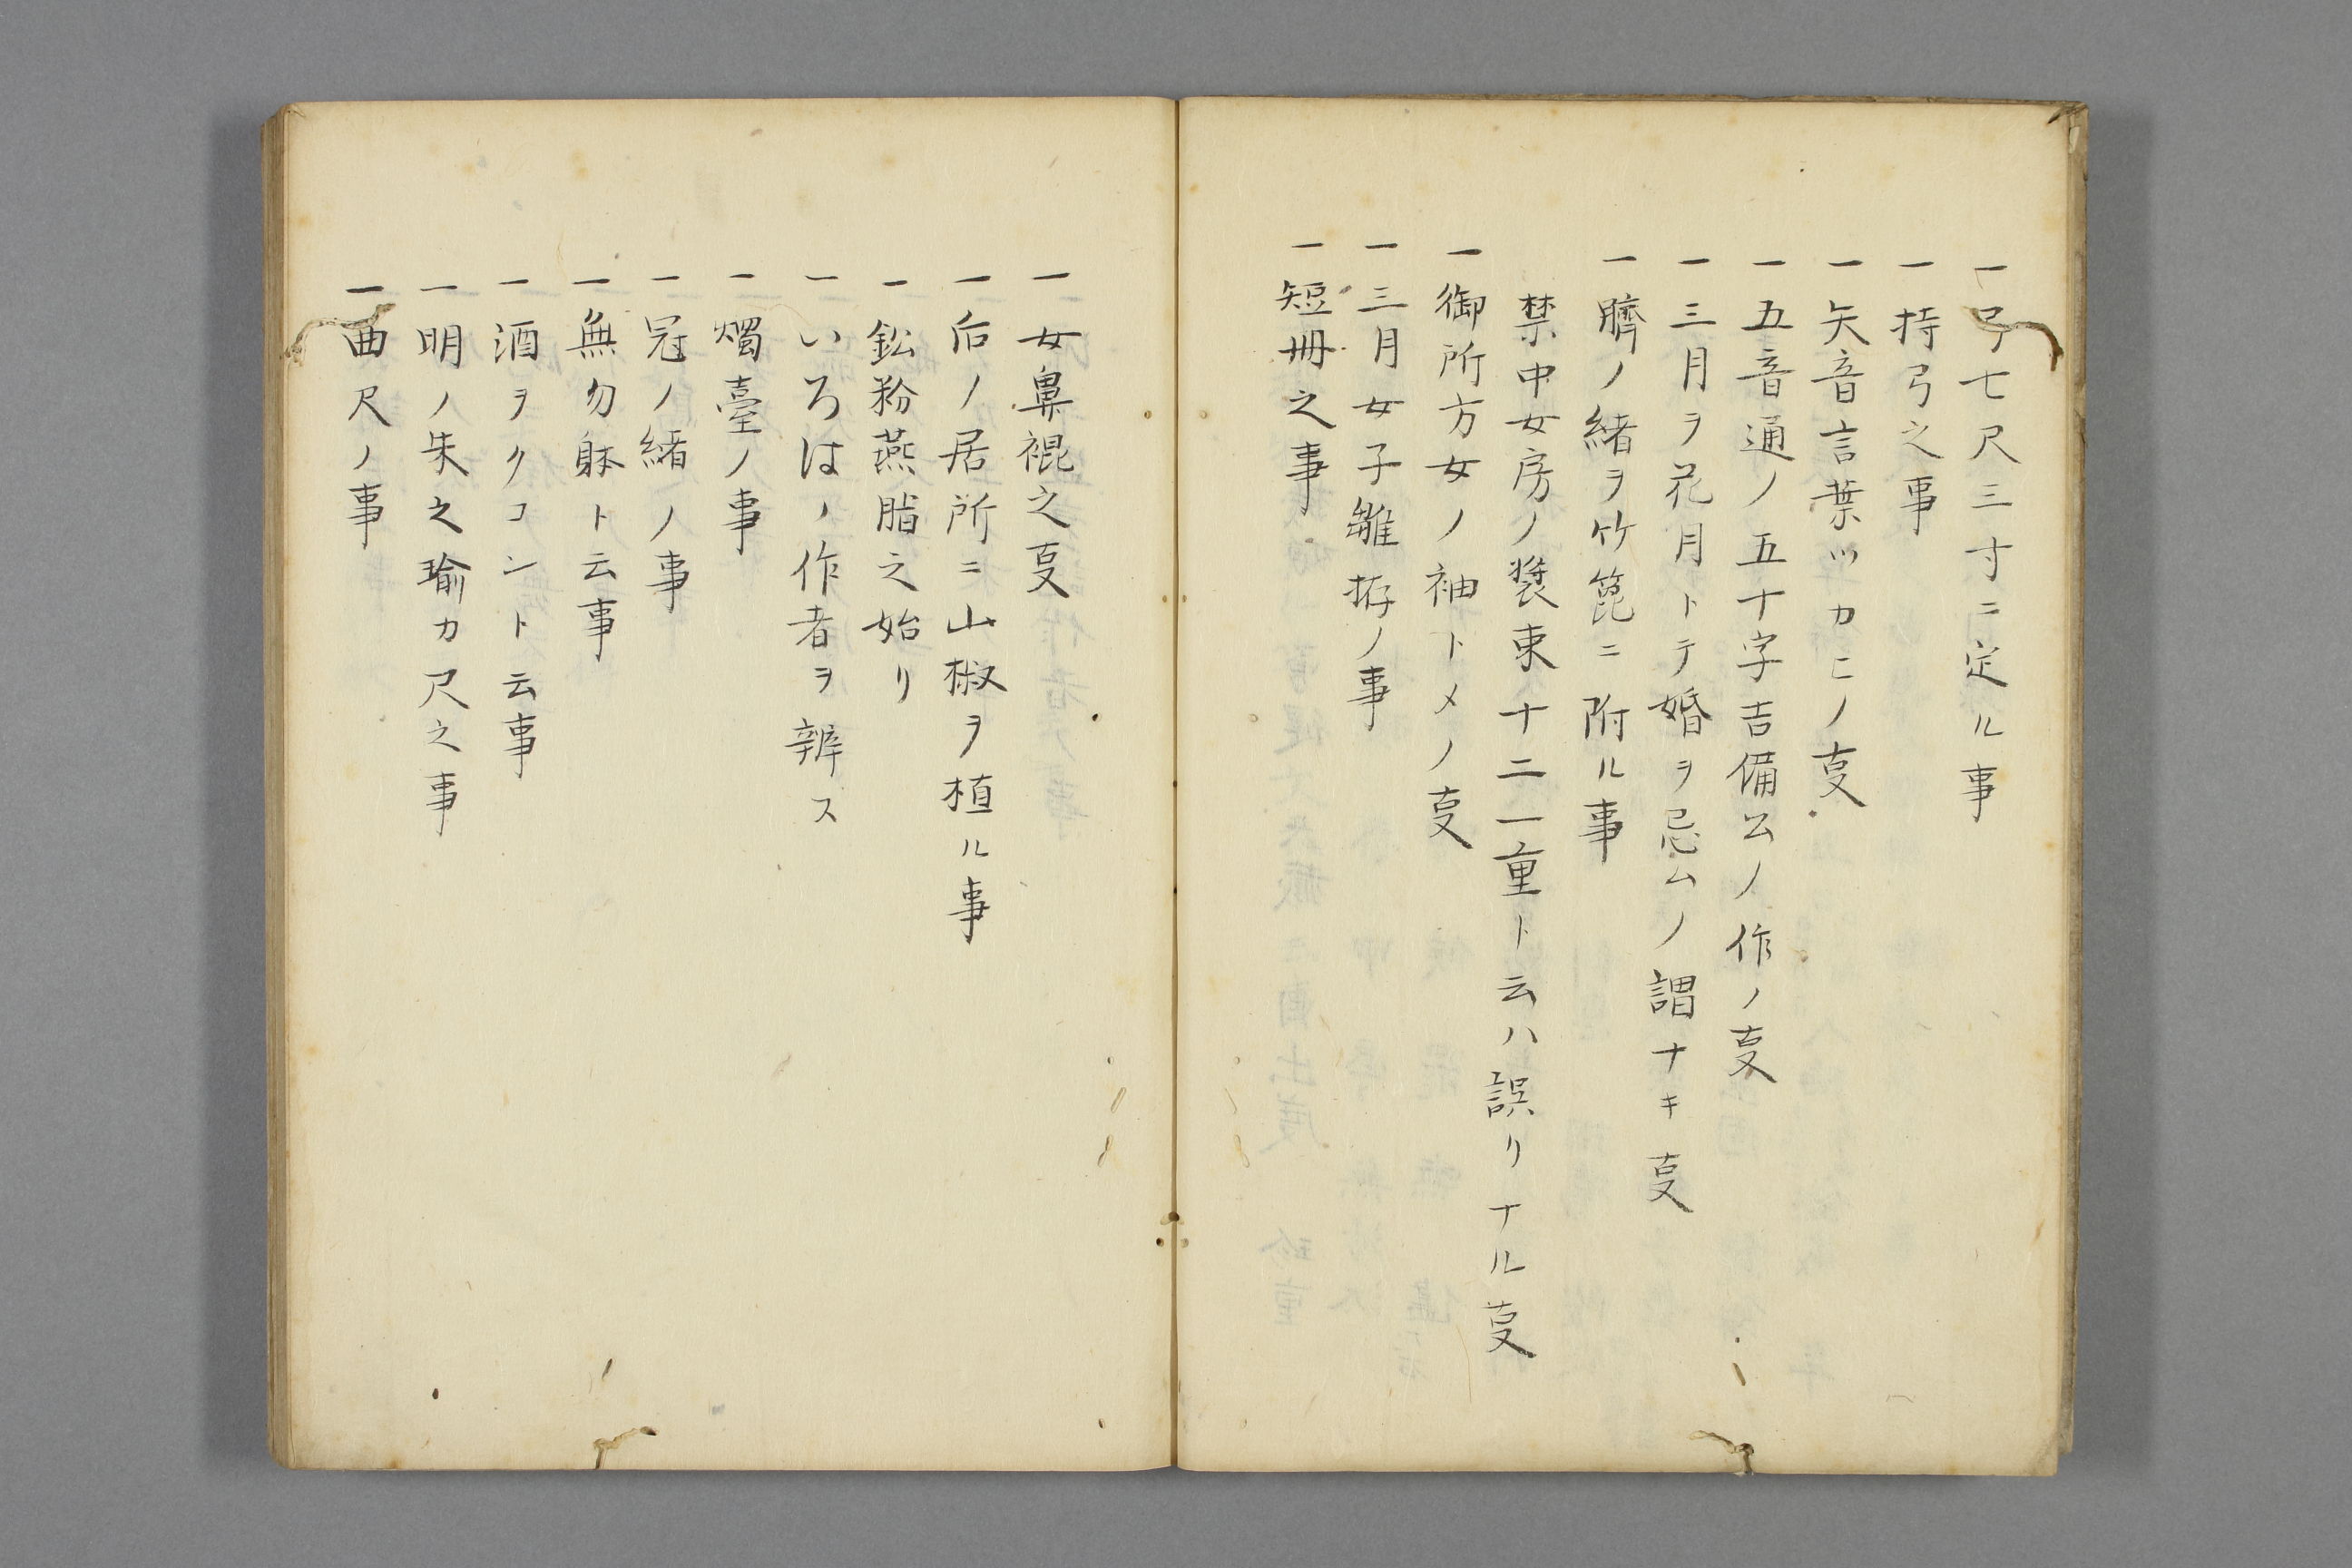 一弓七尺三寸ニ定ル事
一持弓之事
一矢音言葉ツカヒノ㕝
一五音通ノ五十字吉備公ノ作ノ㕝
一三月ヲ花月トテ婚ヲ忌ムノ謂ナキ㕝
一臍ノ緒ヲ竹箆ニ附ル事
禁中女房ノ裝束十二一重ト云ハ誤リナル㕝
一御所方女ノ袖トメノ㕝
一三月女子雛拵ノ事
一短冊之事
一女鼻裩之㕝
一后ノ居所ニ山椒ヲ植ル事
一鈆粉燕脂之始リ
一いろはノ作者ヲ辨ス
一燭臺ノ事
一冠ノ緒ノ事
一無勿躰ト云事
一酒ヲクコント云事
一明ノ朱之瑜カ尺之事
一曲尺ノ事